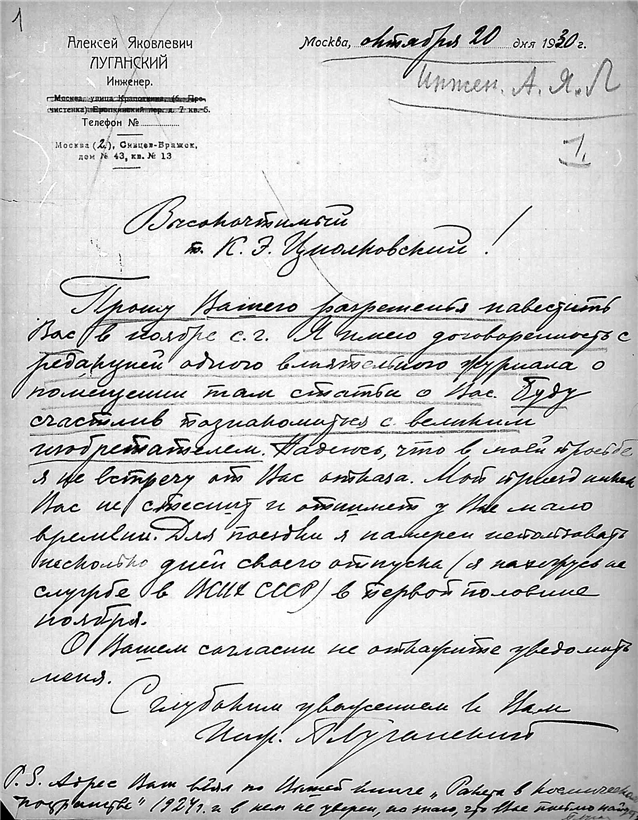 1
Алексей Яковлевич
ЛУГАНСКИЙ
Инженер.
Москва, улица Кропоткина, (б. Пре-
чистенка) Еропкинский пер. д. 7 кв. 5.
Телефон №
Москва (2), Сивцев-Вражек,
дом № 43, кв. № 13
Москва, октября 20 дня 1930 г.
Инжен. А. Я. Л
1.
Высокочтимый
т. К. Э. Циолковский!
Прошу Вашего разрешенья навестить
Вас в ноябре с.г. Я имею договоренность с
редакцией одного влиятельного журнала о
помещении там статьи о Вас. Буду
счастлив познакомиться с великим
изобретателем. Надеюсь, что в моей просьбе
я не встречу от Вас отказа. Мой приезд никак
Вас не стеснит и отнимет у Вас мало
времени. Для поездки я намерен использовать
несколько дней своего отпуска (я нахожусь на
службе в СССР) в первой половине
ноября.
О Вашем согласии не откажите уведомить
меня.
С глубоким уважением к Вам
Инж. АЛуганский
P.S. Адрес Ваш взял по Вашей книге „Ракета в космическое
пространство" 1924 г. и в нем не уверен, но знаю, что Вас письмо